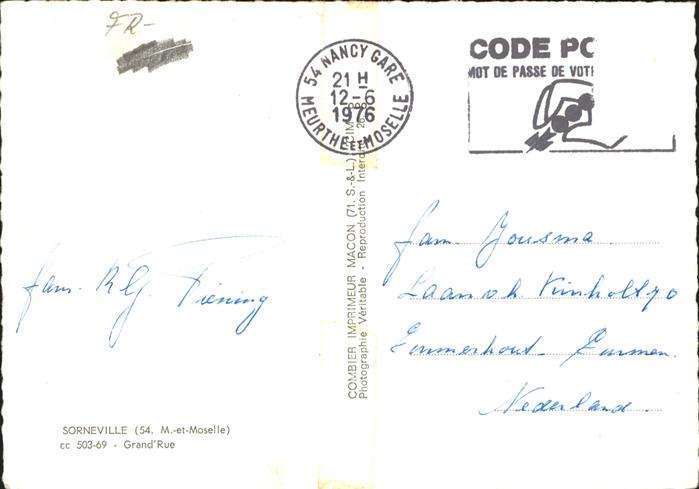 FR-
54 NANCY GARE
21 H
12-6
1976
MEURTHE-ET-MOSELLE
CODE PO
MOT DE PASSE DE VOT
fam. Jousma
Laan v.d.
Emmerhout - Emmen.
Nederland.
fam. R.G. Piening
COMBIER IMPRIMEUR MACON (71. S.-&-L.) CIM
Photographie Véritable - Reproduction Interd
SORNEVILLE (54. M.-et-Moselle)
cc 503-69 - Grand'Rue